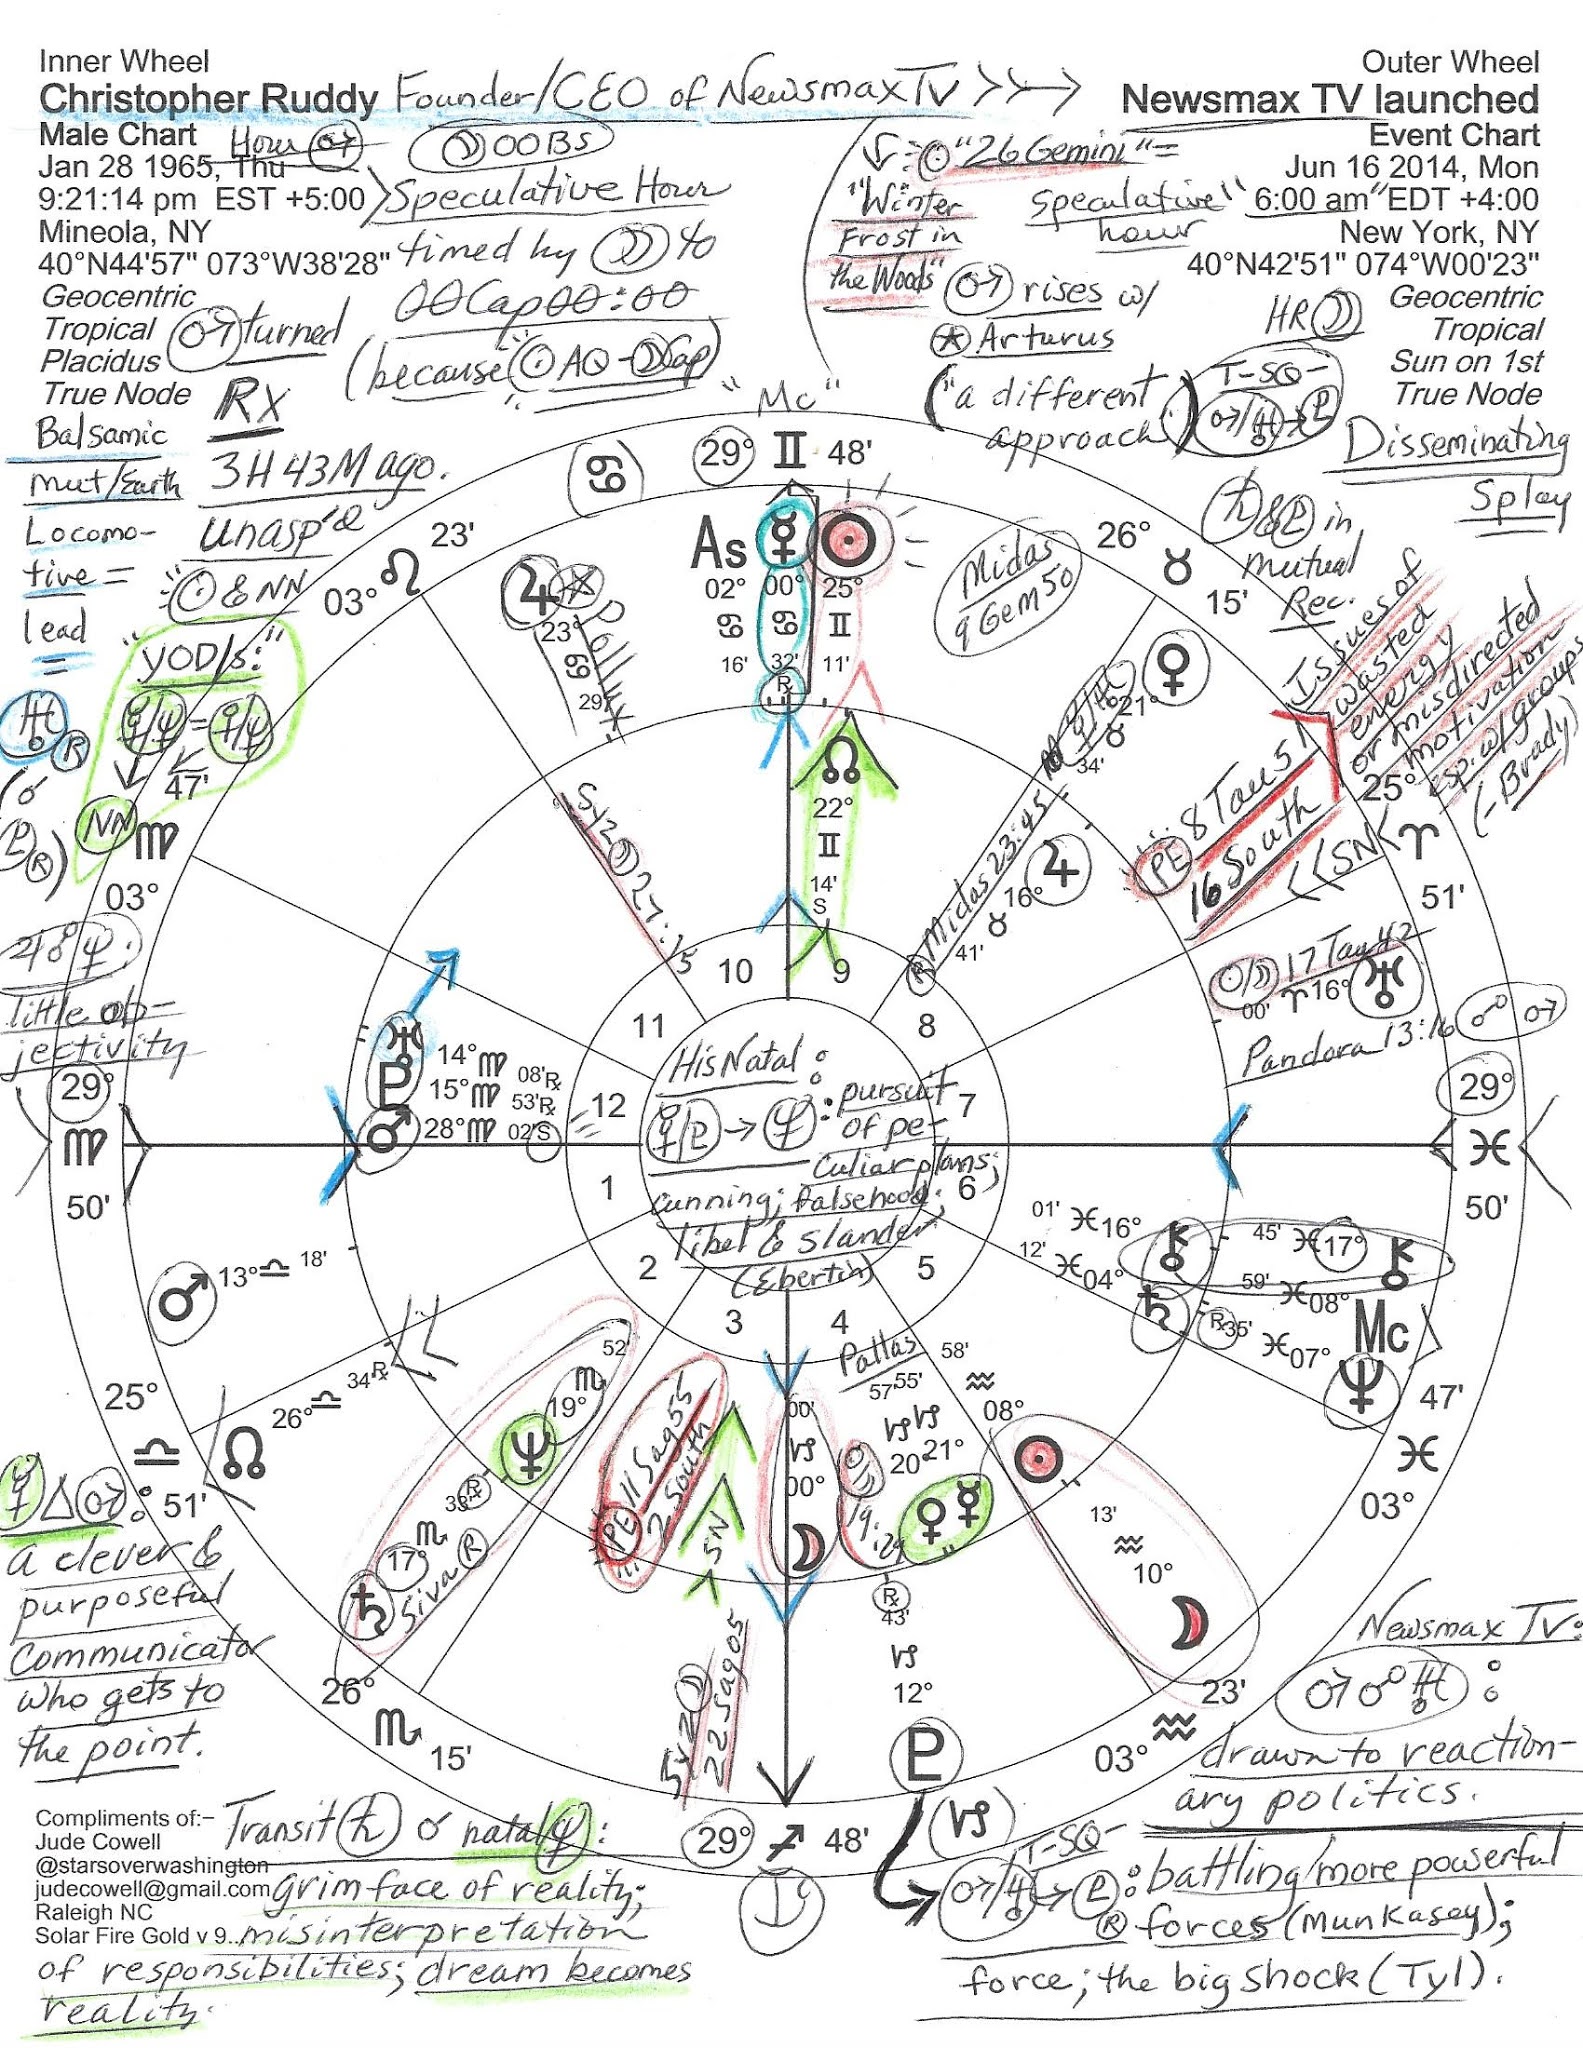 Inner Wheel
Christopher Ruddy Founder/CEO of Newsmax TV
Male Chart
Hour ♂
☽ OOBs
Jan 28 1965, Thu
9:21:14 pm EST +5:00
Speculative Hour
Mineola, NY
timed by ☽ to
40°N44'57" 073°W38'28"
00Cap00:00
Geocentric
Tropical
Placidus
True Node
♂ turned
Rx
3H 43M ago.
(because ☉ AQ - ☽ Cap)
Balsamic
Mut/Earth
Locomo-
tive =
lead
=
♅ ℞
(☌
♇ ℞)
unasp'd
☉ & NN
"YOD/s:"
☿/♆ = ♀/♆
NN
Outer Wheel
Newsmax TV launched
Event Chart
Jun 16 2014, Mon
6:00 am EDT +4:00
New York, NY
40°N42'51" 074°W00'23"
Geocentric
Tropical
Sun on 1st
True Node
☉ "26 Gemini" =
"Winter
Frost in
the Woods"
"speculative"
hour
♂ rises w/
Arturus
("a different
approach")
HR ☽
T-SQ-
♂/♅ → ♇
Disseminating
Splay
♄ & ♇ in
mutual
Rec.
Issues of
wasted
energy
or misdirected
motivation
esp. w/ groups
(-Brady)
"Mc"
29° ♊ 48'
♋
23'
♌
03°
47'
♍
03°
26°
♉
15'
25°
♈
51'
29°
♍
50'
29°
♓
50'
25°
♎
51'
26°
♏
15'
29° ♐ 48'
03°
♒
23'
47'
♓
03°
As
02°
♋
16'
☿
00°
♋
32'
℞
☉
25°
♊
11'
♃
23°
♋
29'
Pallas
Midas
9 Gem 50
♀
21°
♉
34'
☊
22°
♊
14'
S
♃
16°
♉
41'
Midas 23:45
℞
PE 8 Tau 51
16 South
SN
SyZ ☽ 27:15
☉/☽ 17 Tau 42
♅
16°
♈
00'
Pandora 13:16
☍ ♂
♃ ☍ ♆:
little ob-
jectivity
♅ 14° ♍ 08' ℞
♇ 15° ♍ 53' ℞
♂ 28° ♍ 02' S
10
9
11
8
12
7
1
6
2
5
3
4
His Natal:
☿/♇ → ♆: pursuit
of pe-
culiar plans;
cunning; falsehood;
libel & slander
(Ebertin)
01' ♓ 16° ⚷
45' ♓ 17° ⚷
12' ♓ 04° ♄
59' ♓ 08° Mc
℞ 35' ♓ 07° ♆
♂ 13° ♎ 18'
☊ 26° ♎ 34' ℞
♆ 19° ♏ 52'
♄ 17° ♏ 38' ℞
Siva ℞
PE 11 Sag 55
2 South
SN
00'
♑
00°
☽
Pallas
57' 55'
♑ ♑
20° 21°
♀ ☿
58'
♒
08°
☉
13'
♒
10°
☽
☉/☽ 19:29
℞
43'
♑
12°
♇
SyZ ☽
22 Sag 05
☿ △ ♂:
a clever &
purposeful
communicator
who gets to
the point.
Newsmax TV:
♂ ☍ ♅:
drawn to reaction-
ary politics.
(♑)
T-SQ-
♂/♅ → ♇ ℞: battling 'more powerful
forces (Munkasey);
force; the big shock (Tyl).
Compliments of:-
Jude Cowell
@starsoverwashington
judecowell@gmail.com
Raleigh NC
Solar Fire Gold v 9..
Transit ♄ ☌ natal ♆:
grim face of reality;
misinterpretation
of responsibilities; dream becomes
reality.